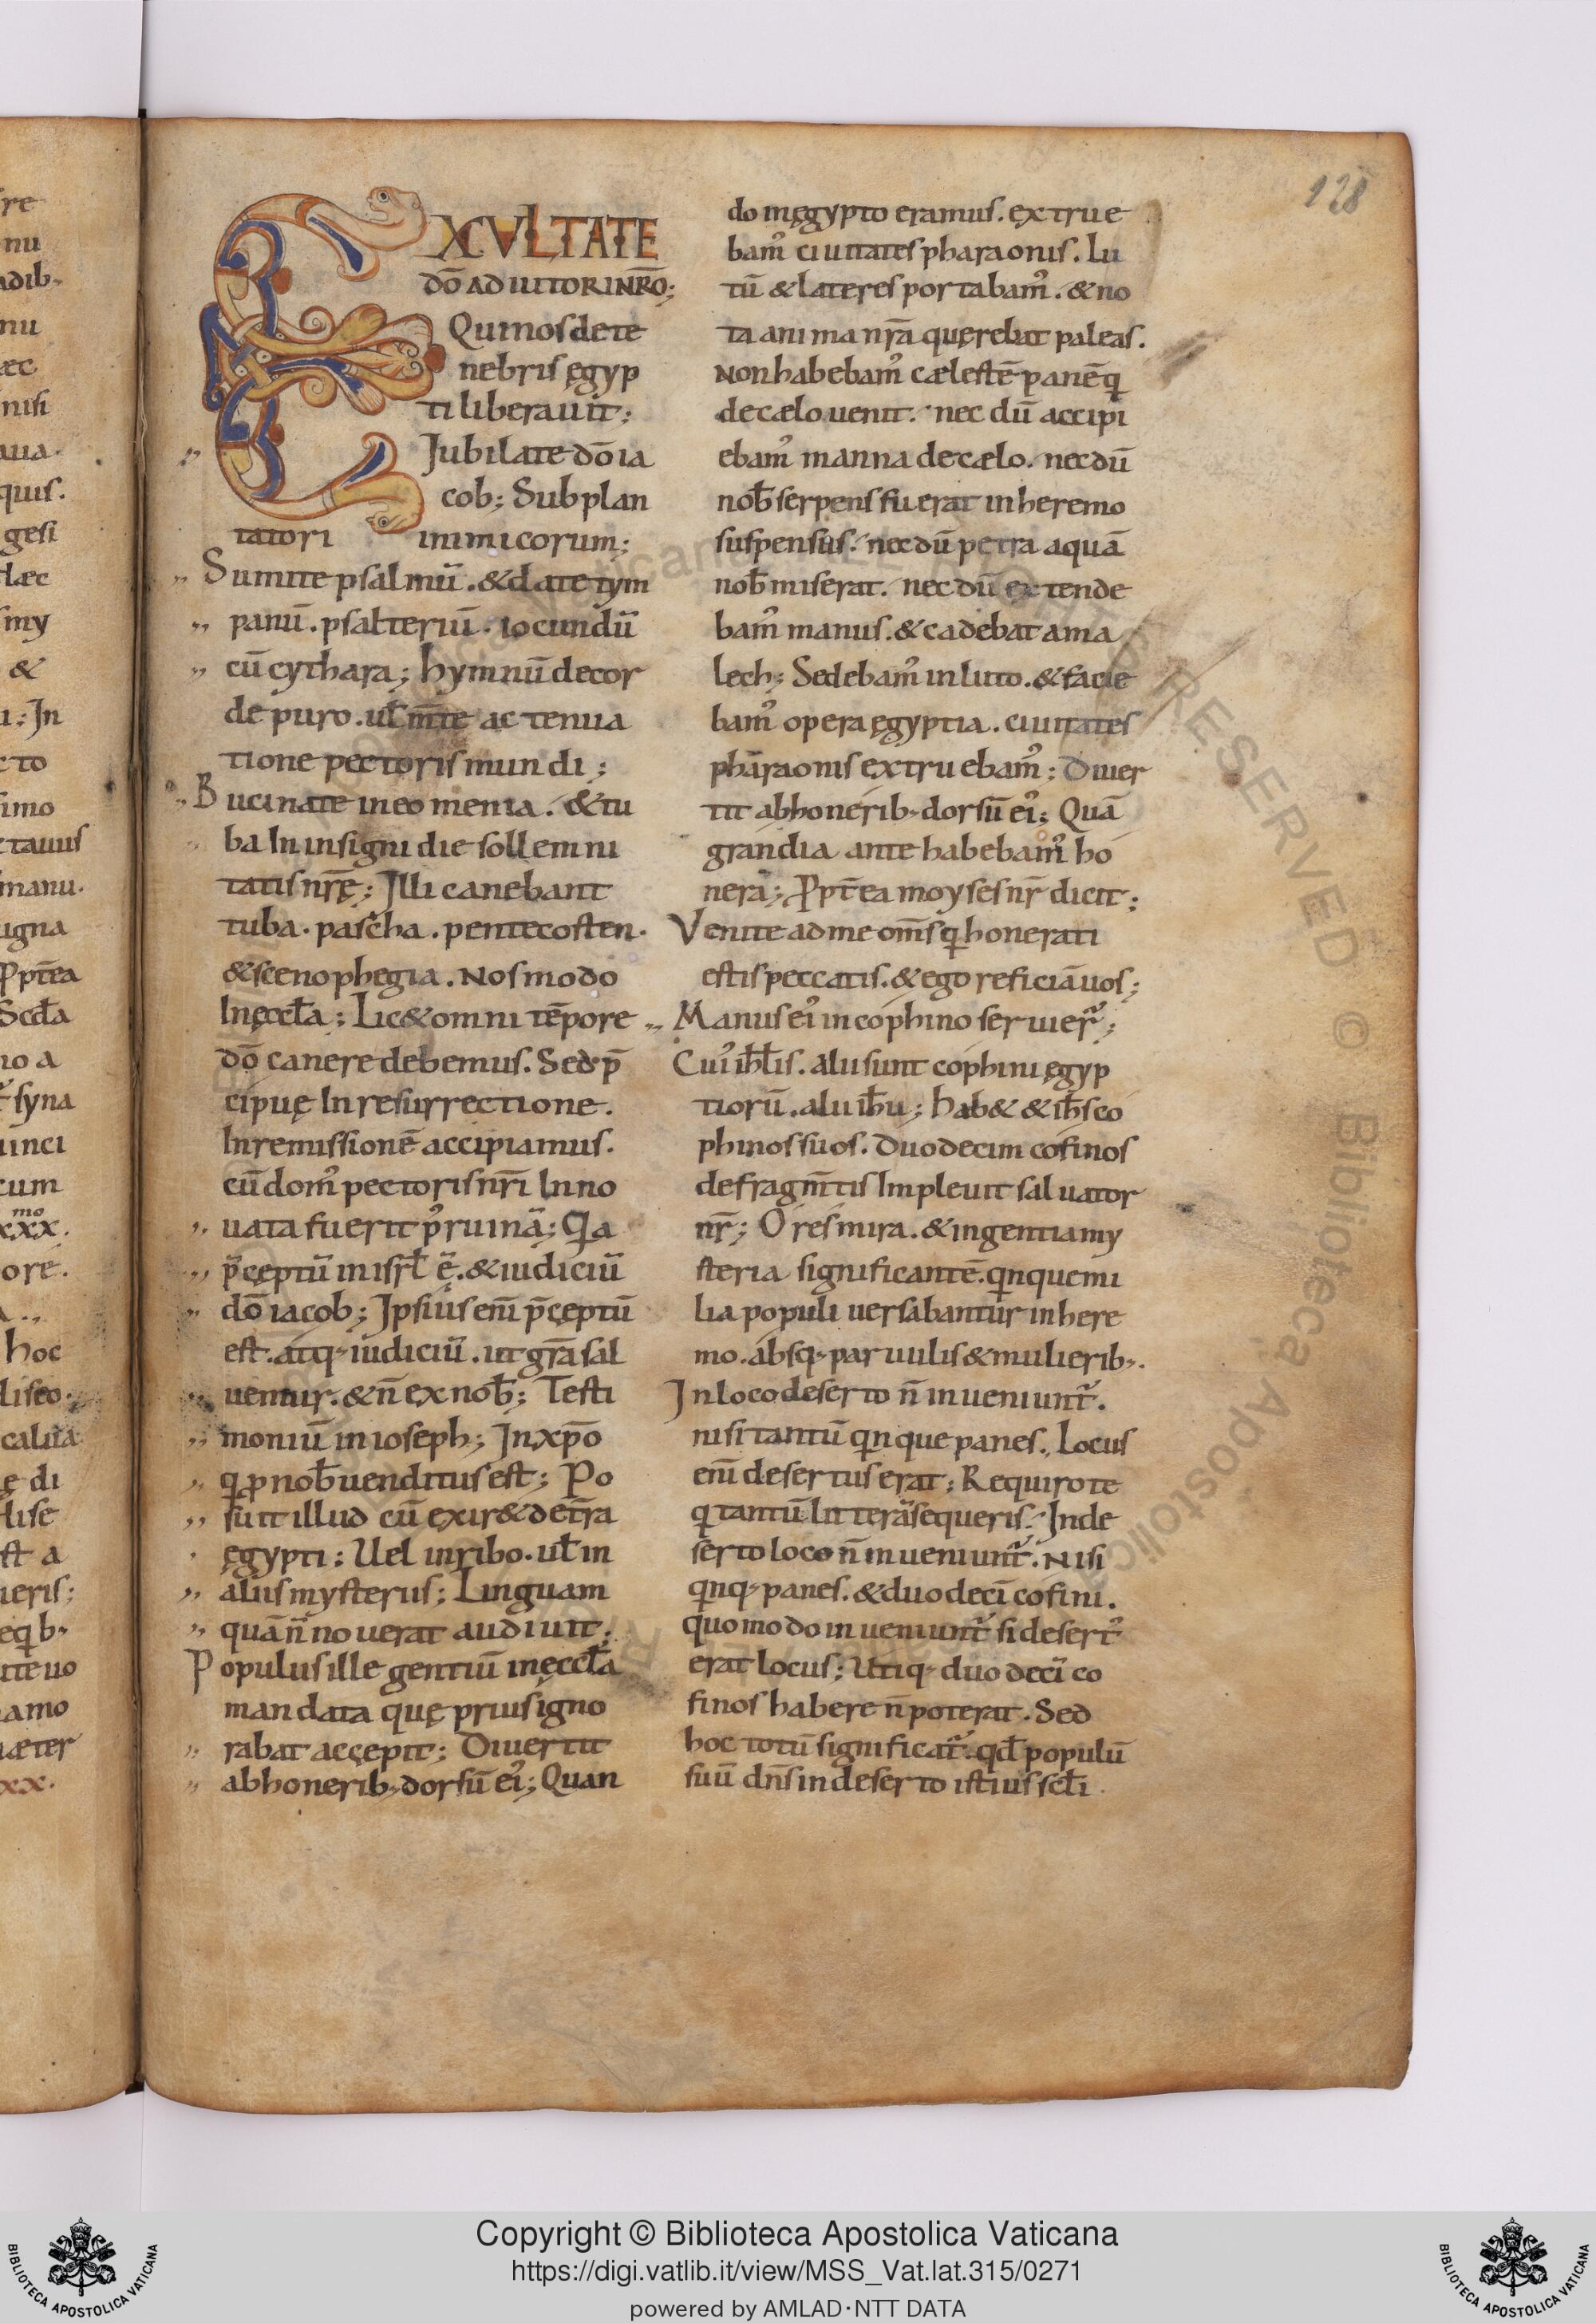 128
EXCVLTATE
dō adiutori nr̄o;
Qui nos de te
nebris ęgyp
ti liberauit;
Jubilate dō ia
cob; Subplan
tatori inimicorum;
Sumite psalmū. & date tym
panū. psalteriū. iocundū
cū cythara; hymnū de cor
de puro. ul̄ m̄te ac tenua
tione pectoris mundi;
Bucinate in eo menia. & tu
ba In insigni die sollemni
tatis nr̄ę; Illi canebant
tuba. pascha. pentecosten.
& scenophegia. Nos modo
In ęccl̄a; Lic& omni tēpore
dō canere debemus. Sed p̄
cipuę In resurrectione.
In remissionē accipiamus.
cū domꝰ pectoris nr̄i In no
uata fuerit pꝰ ruinā; Qia
p̄ceptū in isrl̄ ē. & iudiciū
dō iacob; Ipsius em̄ p̄ceptū
est. atq; iudiciū. ut gr̄a sal
uemur. & n̄ ex nob̄; Testi
moniū in ioseph; In xp̄o
q̇ ꝓ nob̄ uenditus est; Po
suit illud cū exir& de t̄ra
ęgypti; Uel in ribo. ul̄ in
aliis mysteriis; Linguam
quā n̄ nouerat audiuit;
Populus ille gentiū in ęccl̄a
mandata quę prius igno
rabat accepit; Diuertit
ab honerib; dorsū eiꝰ; Quan
do in ęgypto eramus. extrue
bamꝰ ciuitates pharaonis. Lu
tū & lateres portabamꝰ. & no
ta anima nr̄a quęrebat paleas.
Non habebamꝰ cælestē panē q̇
de cælo uenit. nec dū accipi
ebamꝰ manna de cælo. nec dū
nob̄ serpens fuerat in heremo
suspensus. nec dū petra aquā
nob̄ miserat. nec dū extende
bamꝰ manus. & cadebat ama
lech; Sedebamꝰ in luto. & facie
bamꝰ opera ęgyptia. ciuitates
pharaonis extruebamꝰ; Diuer
tit ab honerib; dorsū eiꝰ; Quā
grandia ante habebamꝰ ho
nera; Ꝓpt̄ea moyses nr̄ dicit;
Venite ad me om̄s q̇ honerati
estis peccatis. & ego reficiā uos;
Manus eiꝰ in cophino seruier̄;
Cuiꝰ ihl̄is. alii sunt cophini ęgyp
tiorū. alii ih̄u; hab& & ih̄s co
phinos suos. Duodecim cofinos
de fragm̄tis Impleuit saluator
nr̄; O res mira. & ingentia my
steria significantē. q̇nque mi
lia populi uersabantur in here
mo. absq; paruulis & mulierib;.
In loco deserto n̄ inueniunt̄.
nisi tantū q̇nque panes. Locus
em̄ desertus erat; Requiro te
q̇ tantū litterā sequeris. In de
serto loco n̄ inueniunt̄. Nisi
q̇nq; panes. & duodecī cofini.
quomodo inueniunt̄ si desertꝰ
erat locus; Utiq; duodecī co
finos habere n̄ poterat. Sed
hoc totū significat̄. qd̄ populū
suū dn̄s in deserto istius scl̄i
Copyright © Biblioteca Apostolica Vaticana
https://digi.vatlib.it/view/MSS_Vat.lat.315/0271
powered by AMLAD·NTT DATA
BIBLIOTECA APOSTOLICA VATICANA
BIBLIOTECA APOSTOLICA VATICANA